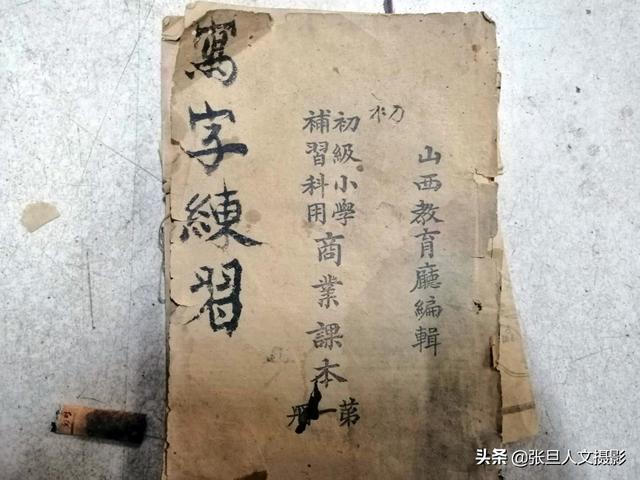 山西教育廳編輯
初
初級小學
補習科用
商業課本
苐一册
寫字練習
头条 @张旦人文摄影